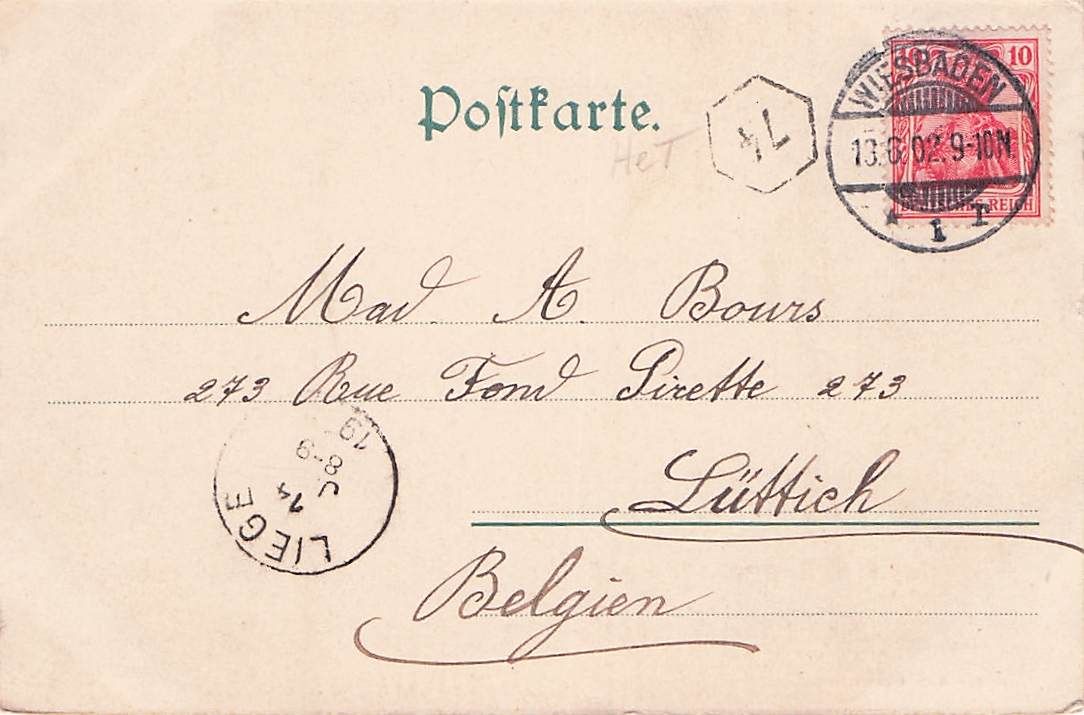 Postkarte.
10 10
WIESBADEN
13.6.02.9-10N.
* 1 r
DEUTSCHES REICH
74
Het
Mad. A. Bours
273 Rue Fond Pirette 273
Lüttich
Belgien
LIEGE
14
8-9
19